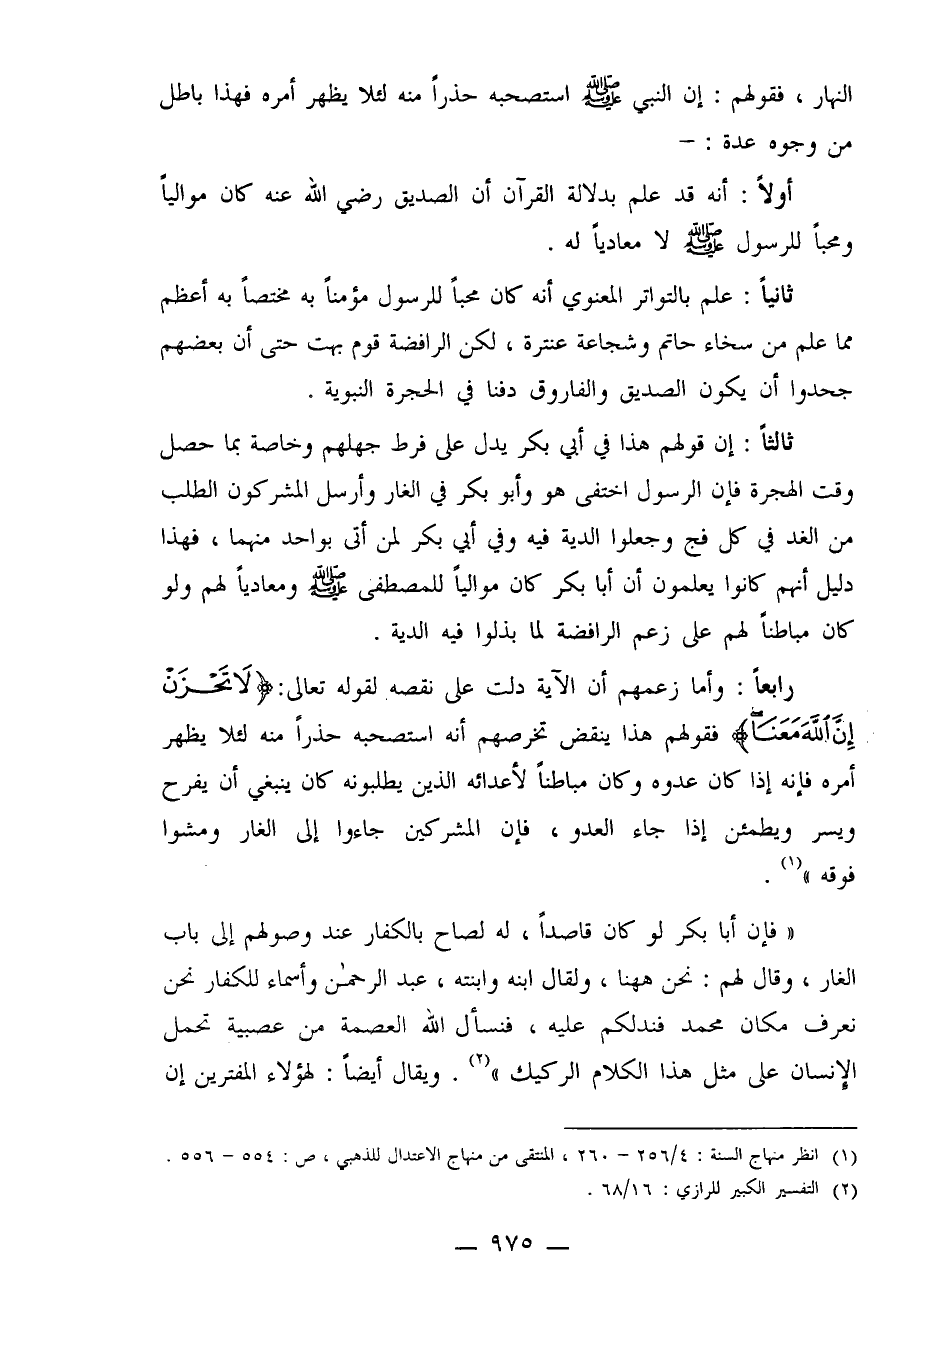 النهار ، فقولهم : إن النبي ﷺ استصحبه حذراً منه لئلا يظهر أمره فهذا باطل
من وجوه عدة : –
أولاً : أنه قد علم بدلالة القرآن أن الصديق رضي الله عنه كان موالياً
ومحباً للرسول ﷺ لا معادياً له .
ثانياً : علم بالتواتر المعنوي أنه كان محباً للرسول مؤمناً به مختصاً به أعظم
مما علم من سخاء حاتم وشجاعة عنترة ، لكن الرافضة قوم بهت حتى أن بعضهم
جحدوا أن يكون الصديق والفاروق دفنا في الحجرة النبوية .
ثالثاً : إن قولهم هذا في أبي بكر يدل على فرط جهلهم وخاصة بما حصل
وقت الهجرة فإن الرسول اختفى هو وأبو بكر في الغار وأرسل المشركون الطلب
من الغد في كل فج وجعلوا الدية فيه وفي أبي بكر لمن أتى بواحد منهما ، فهذا
دليل أنهم كانوا يعلمون أن أبا بكر كان موالياً للمصطفى ﷺ ومعادياً لهم ولو
كان مباطناً لهم على زعم الرافضة لما بذلوا فيه الدية .
رابعاً : وأما زعمهم أن الآية دلت على نقصه لقوله تعالى : ﴿لَا تَحْزَنْ
إِنَّ ٱللَّهَ مَعَنَا﴾ فقولهم هذا ينقض تخرصهم أنه استصحبه حذراً منه لئلا يظهر
أمره فإنه إذا كان عدوه وكان مباطناً لأعدائه الذين يطلبونه كان ينبغي أن يفرح
ويسر ويطمئن إذا جاء العدو ، فإن المشركين جاءوا إلى الغار ومشوا
فوقه »(١) .
« فإن أبا بكر لو كان قاصداً ، له لصاح بالكفار عند وصولهم إلى باب
الغار ، وقال لهم : نحن ههنا ، ولقال ابنه وابنته ، عبد الرحمٰن وأسماء للكفار نحن
نعرف مكان محمد فندلكم عليه ، فنسأل الله العصمة من عصبية تحمل
الإنسان على مثل هذا الكلام الركيك »(٢) . ويقال أيضاً : لهؤلاء المفترين إن
(١) انظر منهاج السنة : ٢٥٦/٤ – ٢٦٠ ، المنتقى من منهاج الاعتدال للذهبي ، ص : ٥٥٤ – ٥٥٦ .
(٢) التفسير الكبير للرازي : ٦٨/١٦ .
— ٩٧٥ —